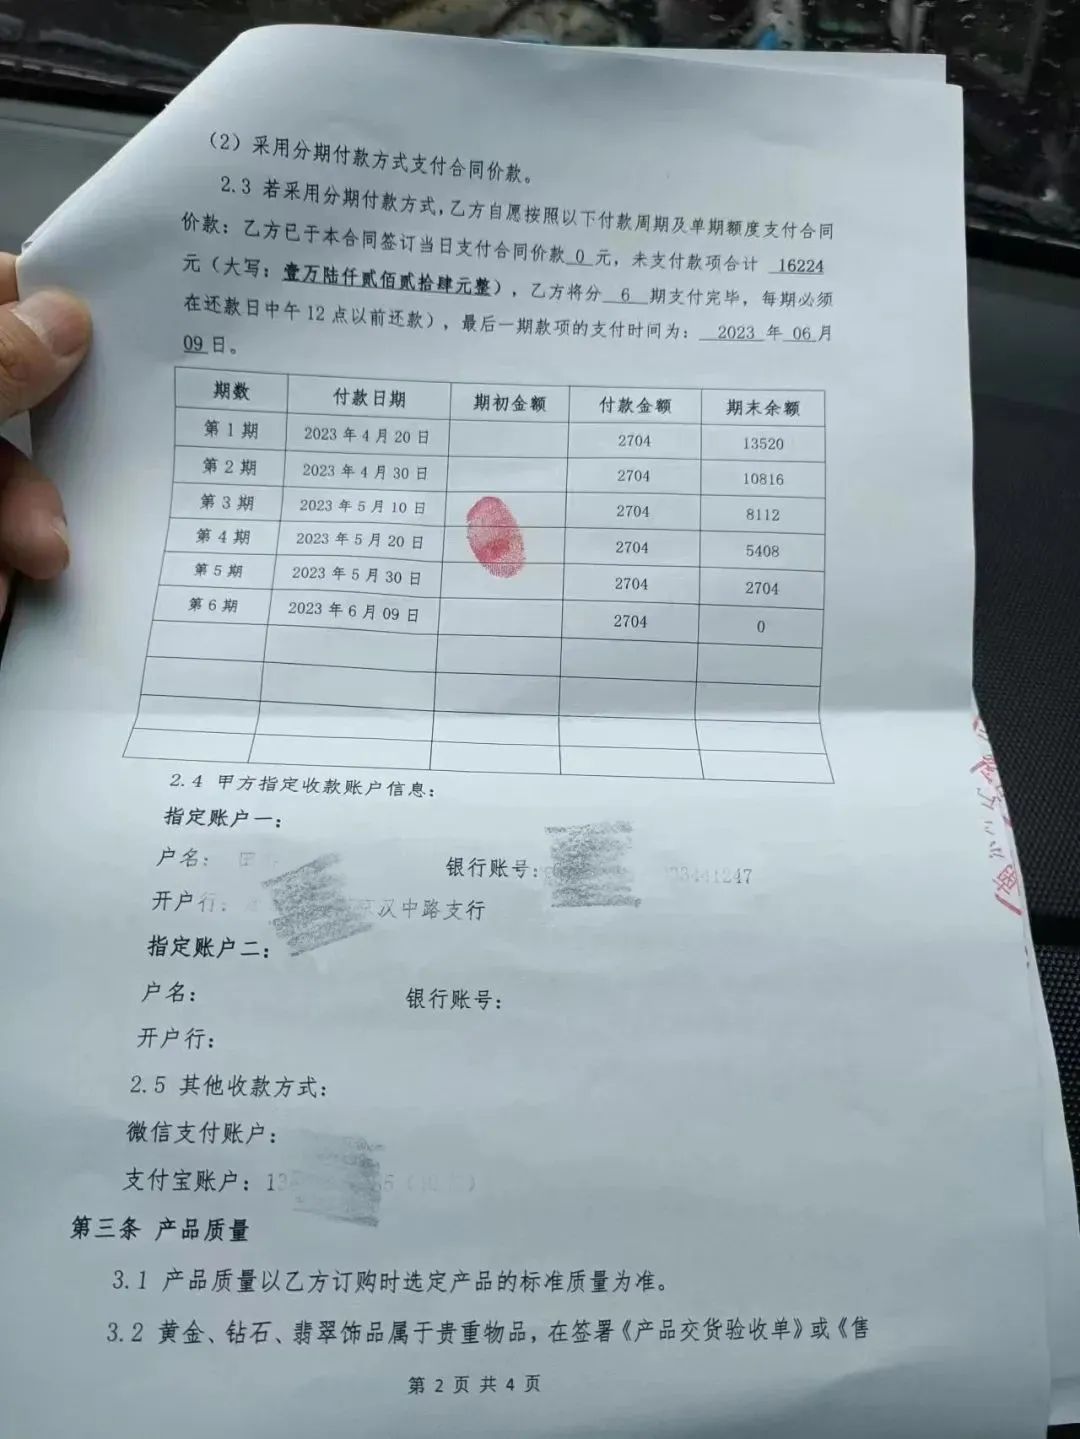 （2）采用分期付款方式支付合同价款。
2.3 若采用分期付款方式，乙方自愿按照以下付款周期及单期额度支付合同
价款：乙方已于本合同签订当日支付合同价款 0 元，未支付款项合计 16224
元（大写：壹万陆仟贰佰贰拾肆元整），乙方将分 6 期支付完毕，每期必须
在还款日中午12点以前还款），最后一期款项的支付时间为： 2023 年 06 月
09 日。
期数 付款日期 期初金额 付款金额 期末余额
第1期 2023年4月20日 2704 13520
第2期 2023年4月30日 2704 10816
第3期 2023年5月10日 2704 8112
第4期 2023年5月20日 2704 5408
第5期 2023年5月30日 2704 2704
第6期 2023年6月09日 2704 0
2.4 甲方指定收款账户信息：
指定账户一：
户名： 银行账号： 33441247
开户行： 汉中路支行
指定账户二：
户名： 银行账号：
开户行：
2.5 其他收款方式：
微信支付账户：
支付宝账户：13
第三条 产品质量
3.1 产品质量以乙方订购时选定产品的标准质量为准。
3.2 黄金、钻石、翡翠饰品属于贵重物品，在签署《产品交货验收单》或《售
第 2 页 共 4 页